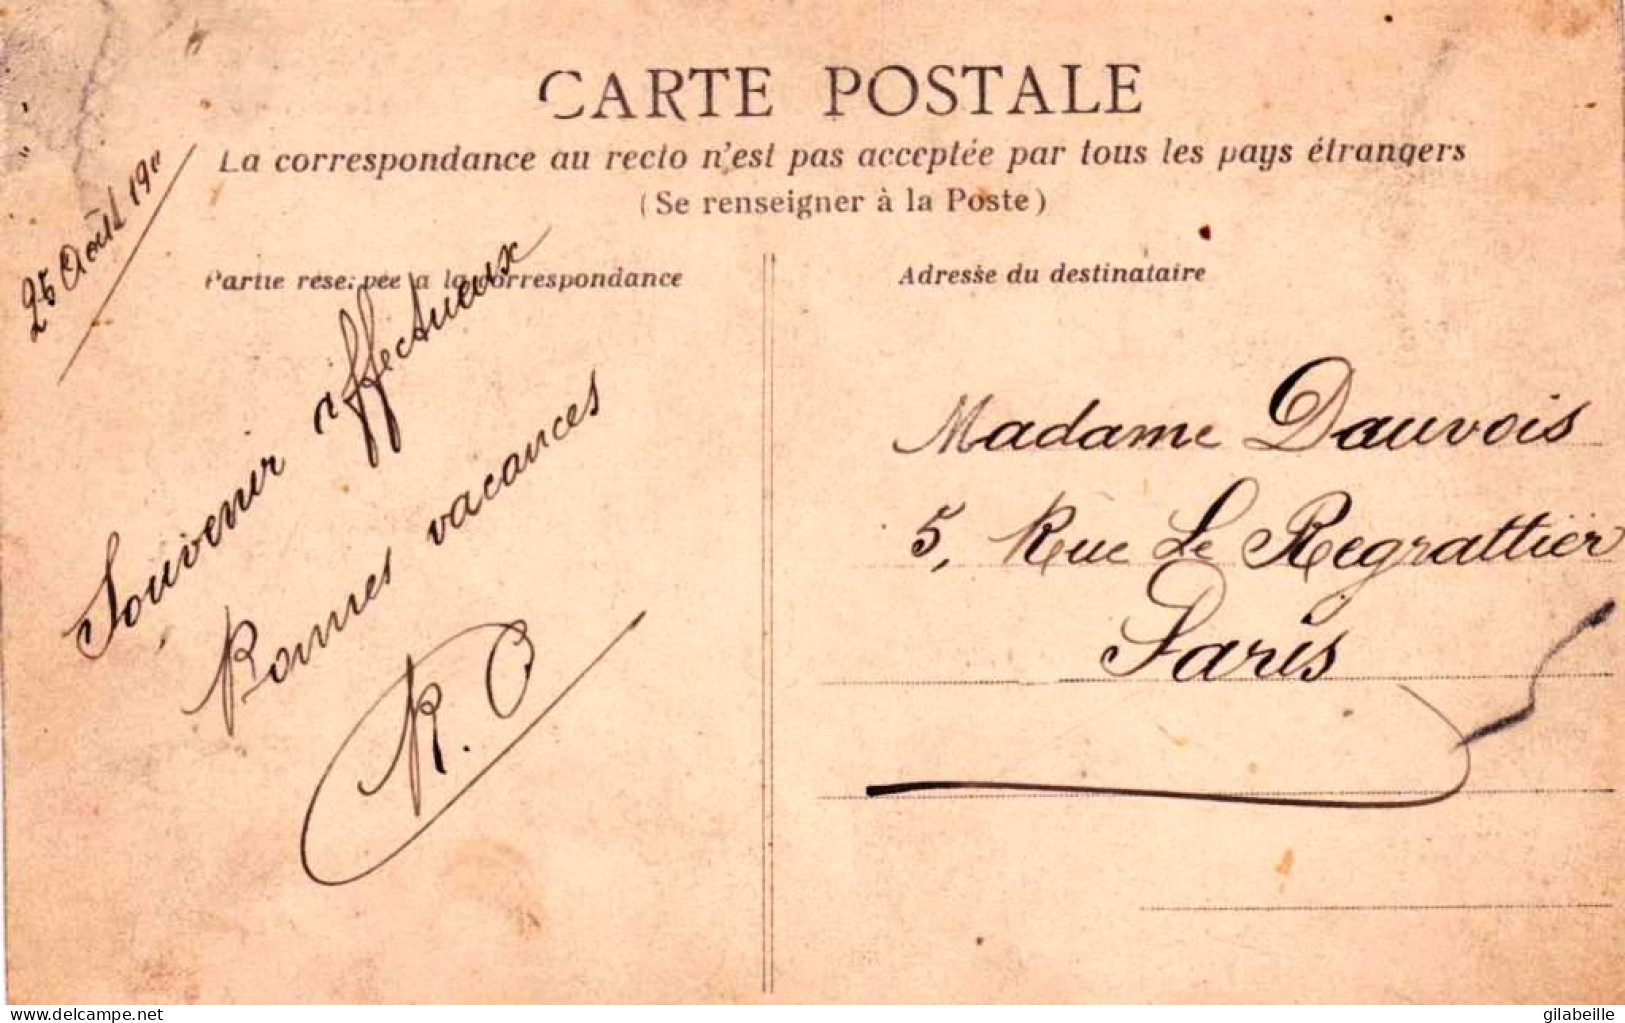 CARTE POSTALE
La correspondance au recto n'est pas acceptée par tous les pays étrangers
(Se renseigner à la Poste)
25 Août 19
Partie réservée à la correspondance
Souvenir affectueux
Bonnes vacances
R. O
Adresse du destinataire
Madame Dauvois
5, Rue Le Regrattier
Paris
delcampe.net
gilabeille